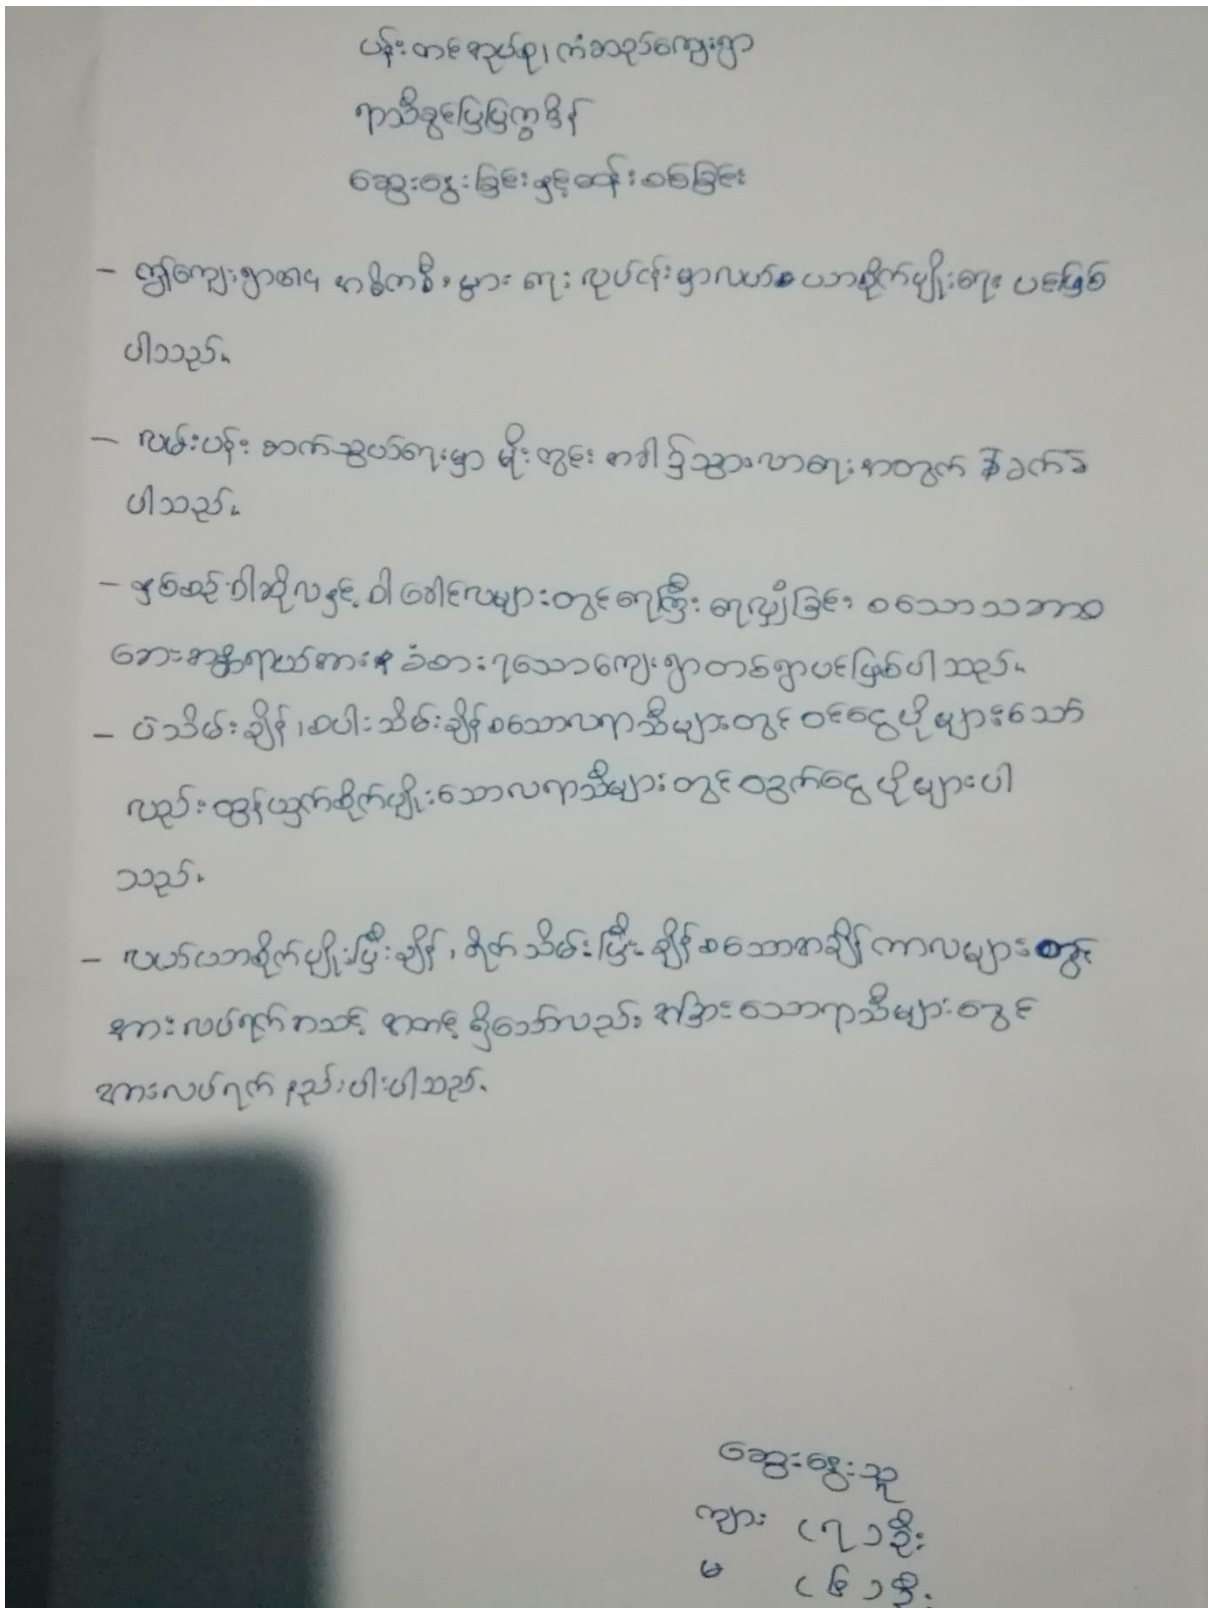 ပန်းတင်အုပ်စု၊ ကံဆည်ကျေးရွာ
ရာသီခွင်ပြပြက္ခဒိန်
ဆွေးနွေးခြင်းနှင့်ဆန်းစစ်ခြင်း
- ဤကျေးရွာ၏ အဓိကစီးပွားရေးလုပ်ငန်းမှာလယ်ယာစိုက်ပျိုးရေး ပင်ဖြစ်
ပါသည်။
- လမ်းပန်း ဆက်သွယ်ရေးမှာ မိုးတွင်း အခါ၌သွားလာရေးအတွက် ခက်ခဲ
ပါသည်။
- နှစ်စဉ် ဝါဆိုလနှင့် ဝါခေါင်လများတွင်ရေကြီး ရေလျှံခြင်း စသောသဘာဝ
ဘေးအန္တရာယ်အား ခံစားရသောကျေးရွာတစ်ရွာပင်ဖြစ်ပါသည်။
- ပဲသိမ်းချိန်၊ စပါးသိမ်းချိန်စသောလရာသီများတွင် ဝင်ငွေပိုများသော်
လည်း ထွန်ယှက်စိုက်ပျိုးသောလရာသီများတွင် ထွက်ငွေပိုများပါ
သည်။
- လယ်ယာစိုက်ပျိုးပြီးချိန်၊ ရိတ်သိမ်းပြီးချိန်စသောအချိန်ကာလများတွင်
အားလပ်ရက်အသင့် အတင့် ရှိသော်လည်း အခြားသောရာသီများတွင်
အားလပ်ရက် နည်းပါးပါသည်။
ဆွေးနွေးသူ
ကျား (၇) ဦး
မ (၆) ဦး